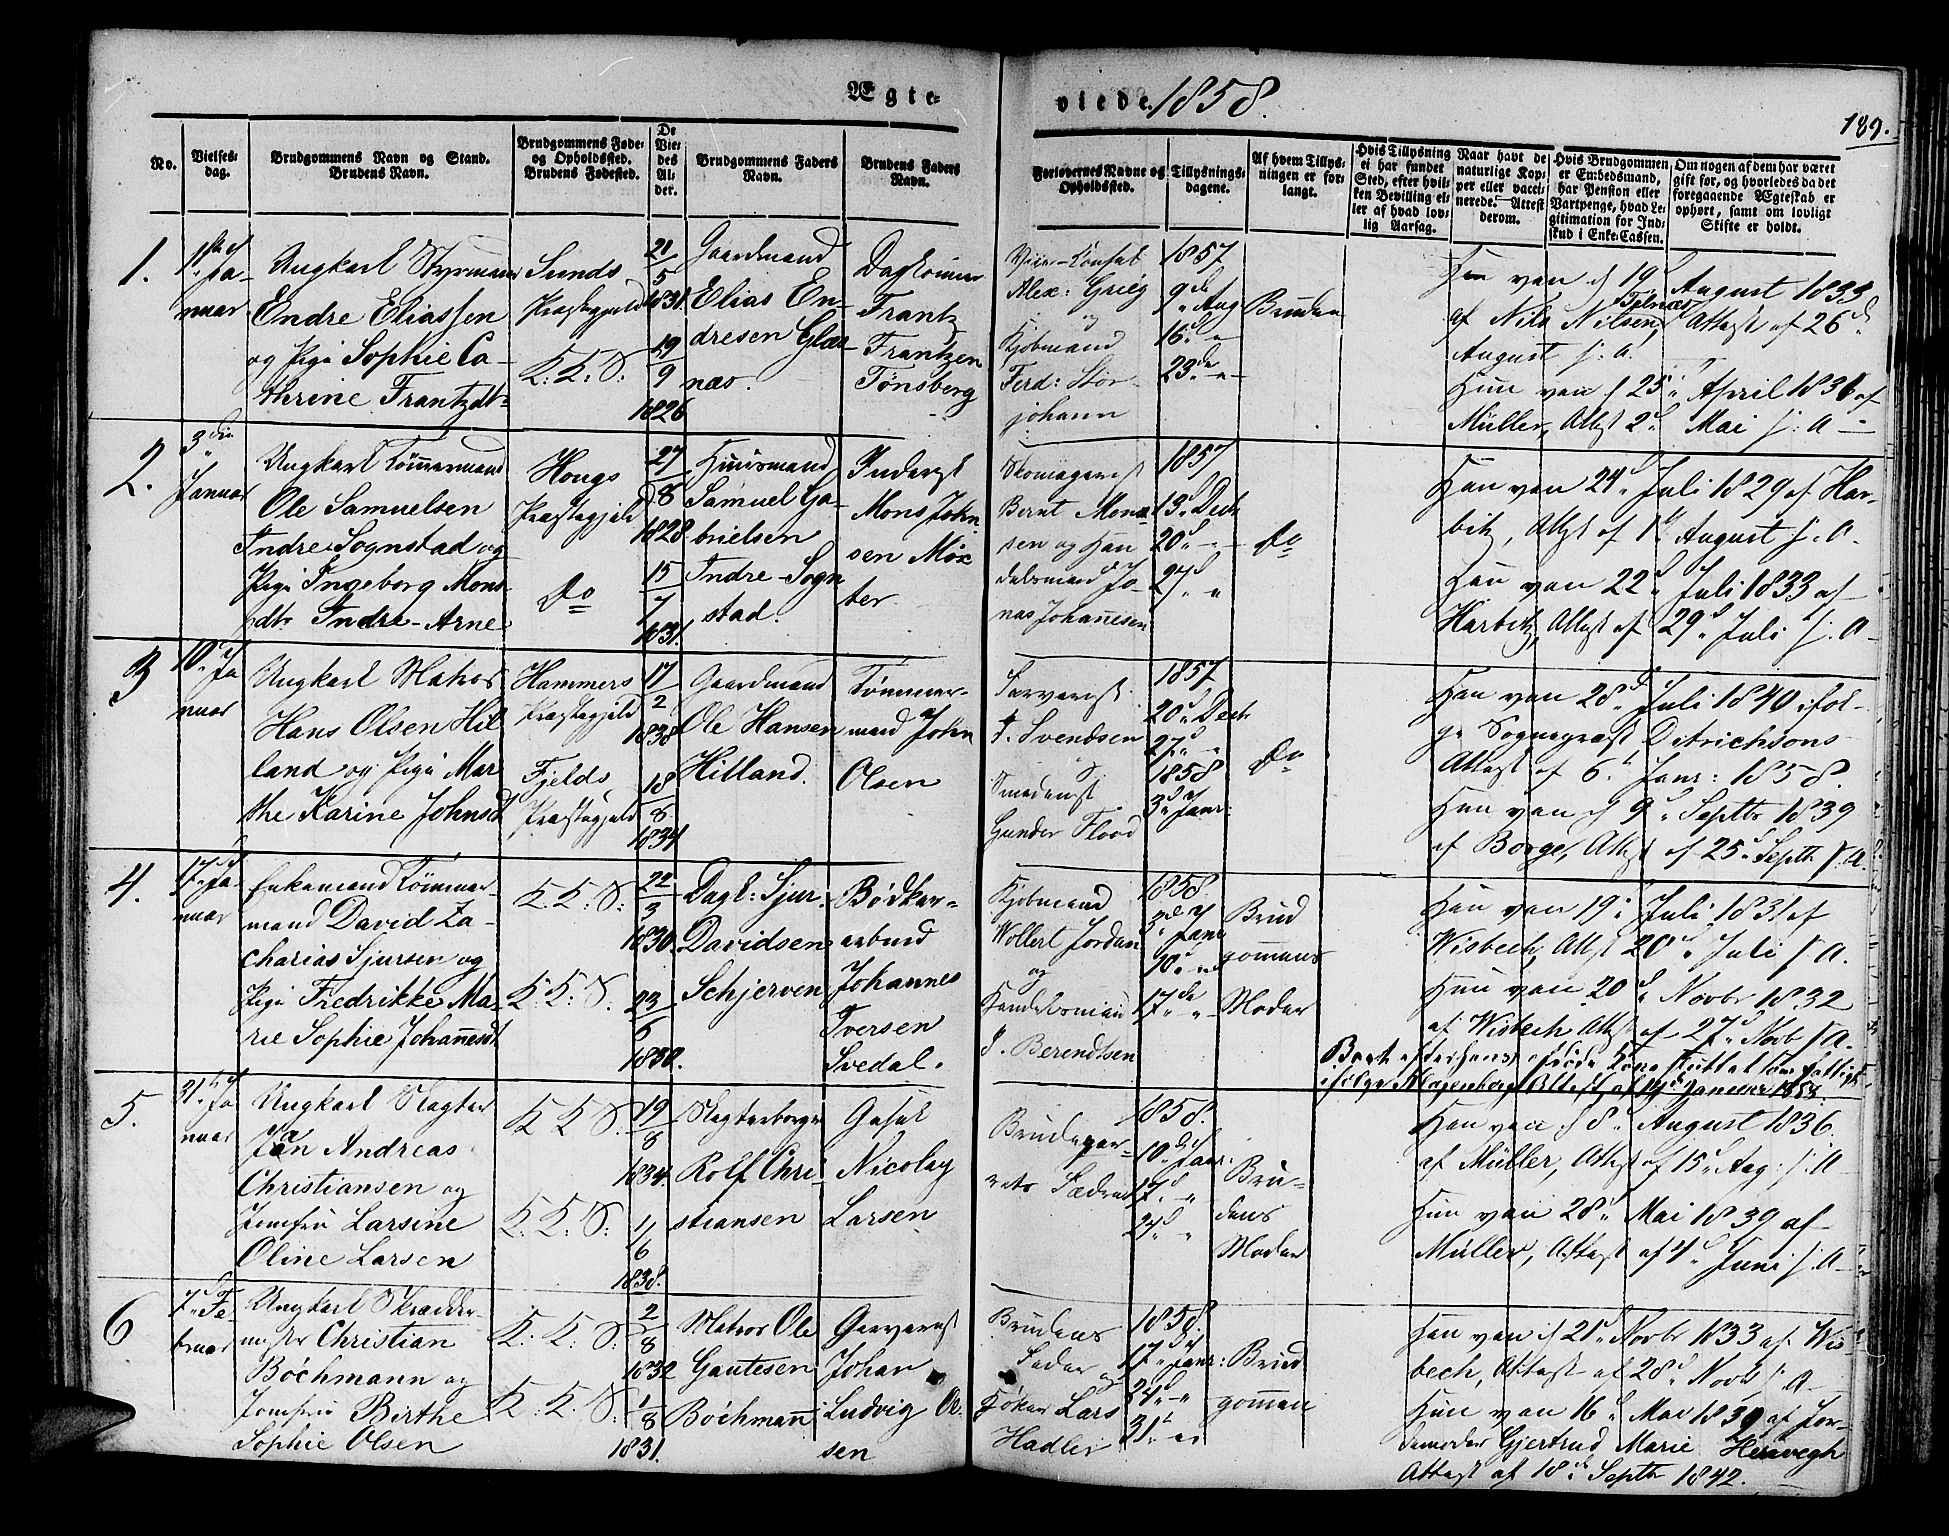 Ægte-
viede 1858.
189.
No.
Vielses-
dag.
Brudgommens Navn og Stand.
Brudens Navn.
Brudgommens Føde-
og Opholdssted.
Brudens Fødested.
De
Vie-
des
Al-
der.
Brudgommens Faders
Navn.
Brudens Faders
Navn.
Forlovernes Navne og
Opholdssted.
Tillysnings-
dagene.
Af hvem Tillys-
ningen er for-
langt.
Hvis Tillysning
ei har fundet
Sted, efter hvil-
ken Bevilling el-
ler af hvad lov-
lig Aarsag.
Naar havt de
naturlige Kop-
per eller vacci-
nerede. Attest
derom.
Hvis Brudgommen
er Embedsmand,
har Pension eller
Vartpenge, hvad Le-
gitimation for Ind-
skud i Enke-Cassen.
Om nogen af dem har været
gift før, og hvorledes da det
foregaaende Ægteskab er
ophørt, samt om lovligt
Skifte er holdt.
1.
1ste Ja-
nuar
Ungkarl Styrmand
Endre Eliassen
og Pige Sophie Ca-
thrine Frantzdt
Sunds
Præstegjeld
K: K: S:
21
5
1831.
19
9
1826
Gaardmand
Elias En-
dresen Glæs-
næs.
Dagkommer
Frantz
Frantzen
Tønsberg
Vice-Konsul
Alex: Grieg
og
Kjøbmand
Ferd: Stor-
johann
1857
9de Aug
16d "
23de "
Bruden
Han vac d 19d August 1833
af Nils Nilsen, Attest af 26d
August s: a.
Hun vac d 25d April 1836 af
Müller, Attest 2d Mai s: a
2.
3die
Januar
Ungkarl Tømmermand
Ole Samuelsen
Indre Sognstad og
Pige Ingeborg Mons-
dtr Indre-Arne
Hougs
Præstegjeld
Do
27
8
1828
15
7
1831.
Huusmand
Samuel Ga-
brielsen
Indre-Sogn
stad.
Inderst
Mons John
sen Møx
ter
Skomagersv
Bernt Mon-
sen og Han
delsmand Jo-
nas Johannesen
1857
13d Dech
20d "
27d "
Do
Han vac 24d Juli 1829 af Har-
bitz, Attest af 1d August s. a.
Hun vac 22d Juli 1833 af
Harbitz, Attest af 29d Juli s. a
3
10d Ja
nuar
Ungkarl Matros
Hans Olsen Hil
land og Pige Mar
the Karine Johnsd
Hammers
Præstegjeld
Fjelds
Præstegjeld
17
2
1838
18
8
1834
Gaardmand
Ole Hansen
Hilland.
Tømmer-
mand John
Olsen
Svendsen
Gunder Flood
1857
20d Dech
27d "
1858
3d Janr:
Do
Han vac 28d Juli 1840 iføl-
ge Sognepræst Ditrichsons
Attest af 6d Janr: 1858.
Hun vac d 9d Septbr 1839
af Borge, Attest af 25d Septbr s. a
4.
17d Ja
nuar
Enkemand Tømmer-
mand David Za-
charias Sjursen og
Pige Fredrikke Ma-
rie Sophie Johannesdt
K: K: S:
K: K: S.
22
3
1830.
23
6
1830.
Dagl: Sjur
Davidsen
Schjerven
Bødker-
arbeid
Johannes
Iversen
Svedal.
Kjøbmand
Wollert Jordan
og
Handelsmand
J. Berendtsen
1858.
3d Janr
10d "
17de "
Brud
gommens
Moder
Han vac 19d Juli 1831 af
Wisbech, Attest 20d Juli s a.
Hun vac 20d Novbr 1832
af Wisbech, Attest af 27d Nov s a.
Boet efter hans afdøde Kone sluttet som fattigt
ifølge Magenborgs Attest af 19d Januar 1853.
5.
31te Ja
nuar
Ungkarl Slagter
Jan Andreas
Christiansen og
Jomfru Larsine
Oline Larsen
K K S.
K. K. S:
19
8
1834.
11
6
1838.
Slagterborger
Rolf Chri-
stiansen
Gesel
Nicolay
Larsen
Brudepar-
rets Fædre
1858.
10d Janr:
17d "
24d "
Bru-
dens
Moder
Han vac d 8d August 1836.
af Müller, Attest af 15d Aug: s: a
Hun vac 28d Mai 1839 af
Müller, Attest af 4d Juni s. a
6
7d Fe-
bruar
Ungkarl Skrædder-
mester Christian
Bøchmann og
Jomfru Birthe
Sophie Olsen
K: K: S:
K: K: S:
2
8
1832
1
8
1831.
Matros Ole
Gautesen
Bøchmann
Garversv
Johan
Ludvig Ol-
sen
Brudens
Fader og
Høker Lars
Hadler
1858.
17d Janr:
24d "
31t "
Brud
gommen
Han vac d 21d Novbr 1833 af Wis-
bech, Attest af 28d Novb s. a
Hun vac 16d Mai 1839 af Jor-
demoder Gjertrud Marie Heravegh
Attest af 18d Septbr 1842.